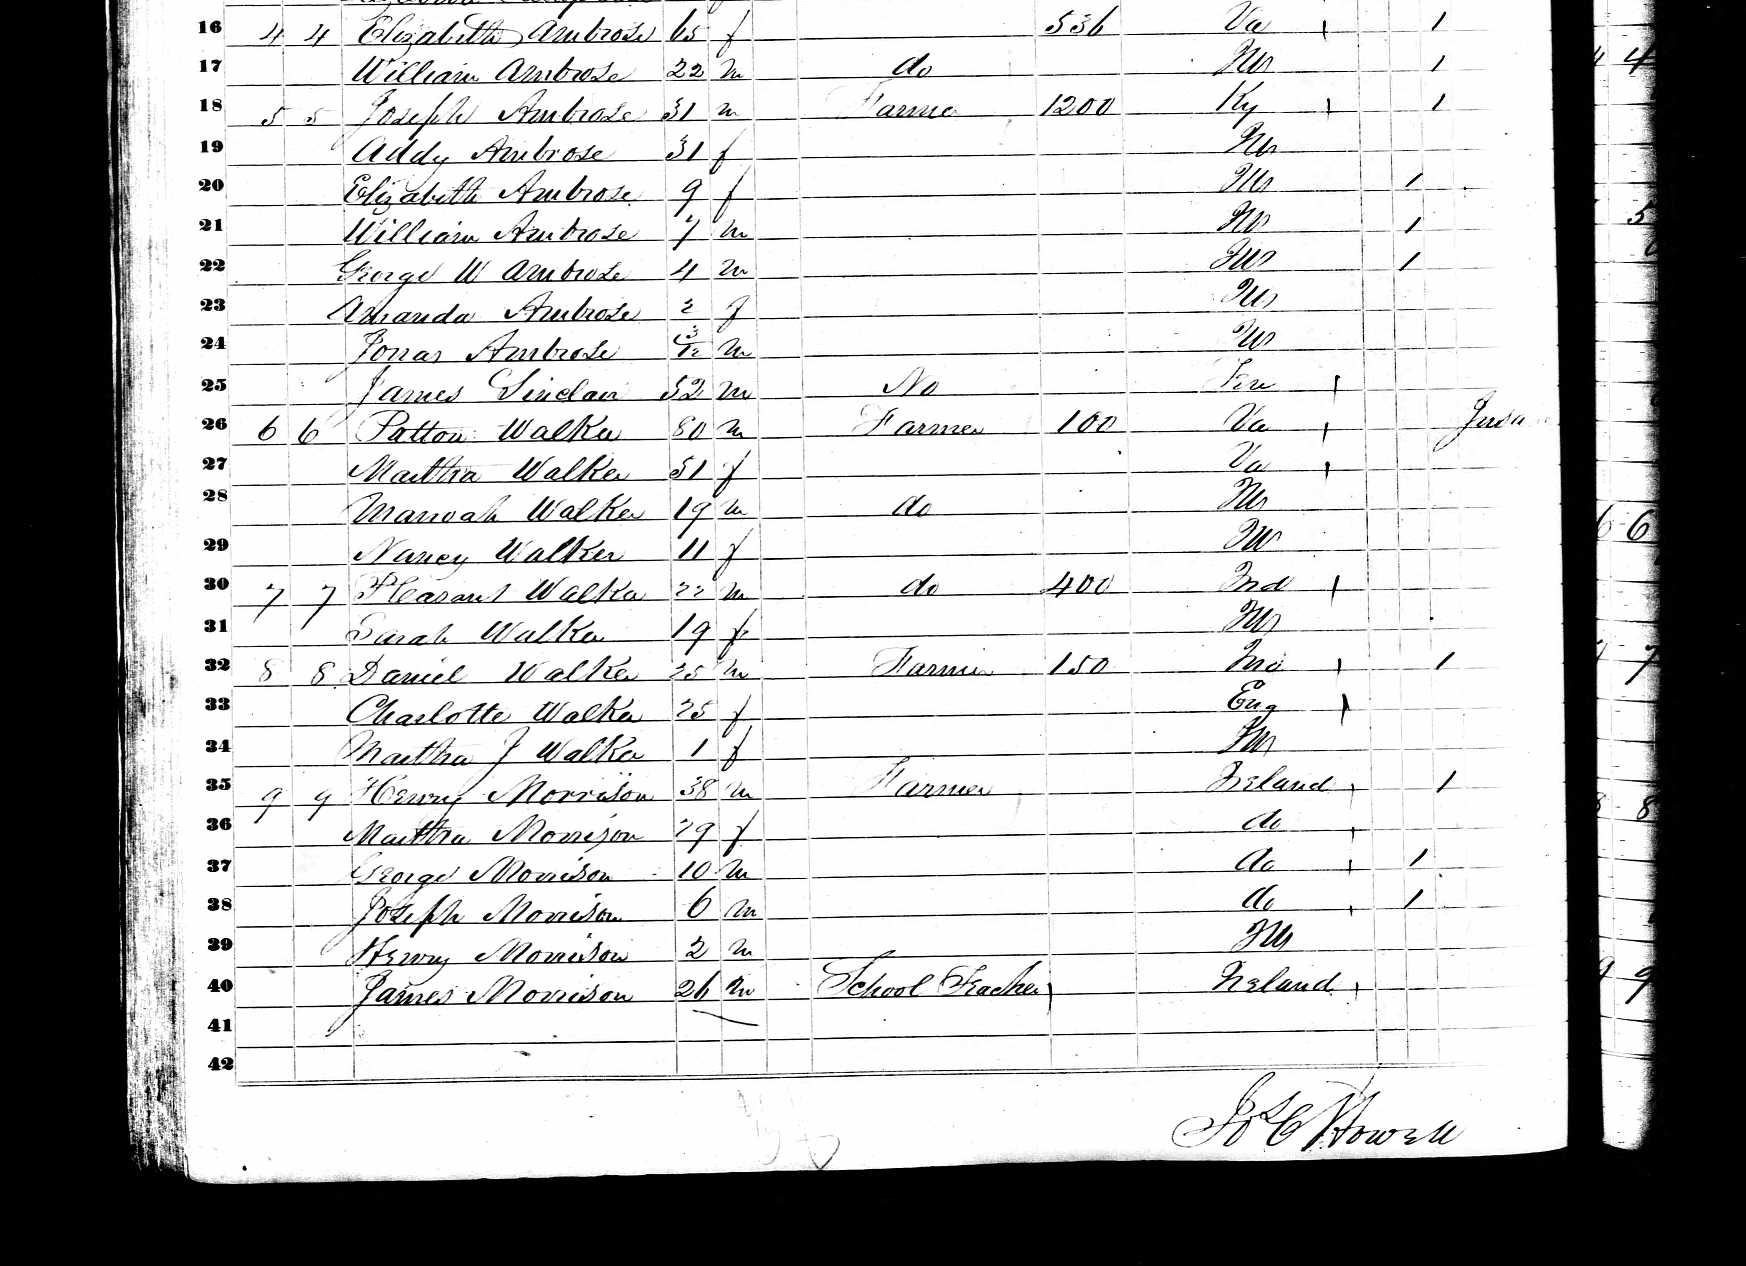 16 4 4 Elizabeth Ambrose 65 f 536 Va 1
17 William Ambrose 22 m do Ills 1
18 5 5 Joseph Ambrose 31 m Farmer 1200 Ky 1
19 Addy Ambrose 31 f Ills
20 Elizabeth Ambrose 9 f Ills 1
21 William Ambrose 7 m Ills 1
22 George W Ambrose 4 m Ills 1
23 Amanda Ambrose 2 f Ills
24 Jonas Ambrose 3/12 m Ills
25 James Sinclair 52 m No
26 6 6 Patton Walker 80 m Farmer 100 Va
27 Martha Walker 51 f Va
28 Manoah Walker 19 m do Ills
29 Nancy Walker 11 f Ills
30 7 7 Pleasant Walker 22 m do 400 Ind
31 Sarah Walker 19 f Ills
32 8 8 Daniel Walker 25 m Farmer 150 1
33 Charlotte Walker 25 f Eng
34 Martha J Walker 1 f Ills
35 9 9 Henry Morrison 38 m Farmer Ireland 1
36 Martha Morrison 29 f do
37 George Morrison 10 m do 1
38 Joseph Morrison 6 m do 1
39 Henry Morrison 2 m Ills
40 James Morrison 26 m School Teacher Ireland
41
42
Howell